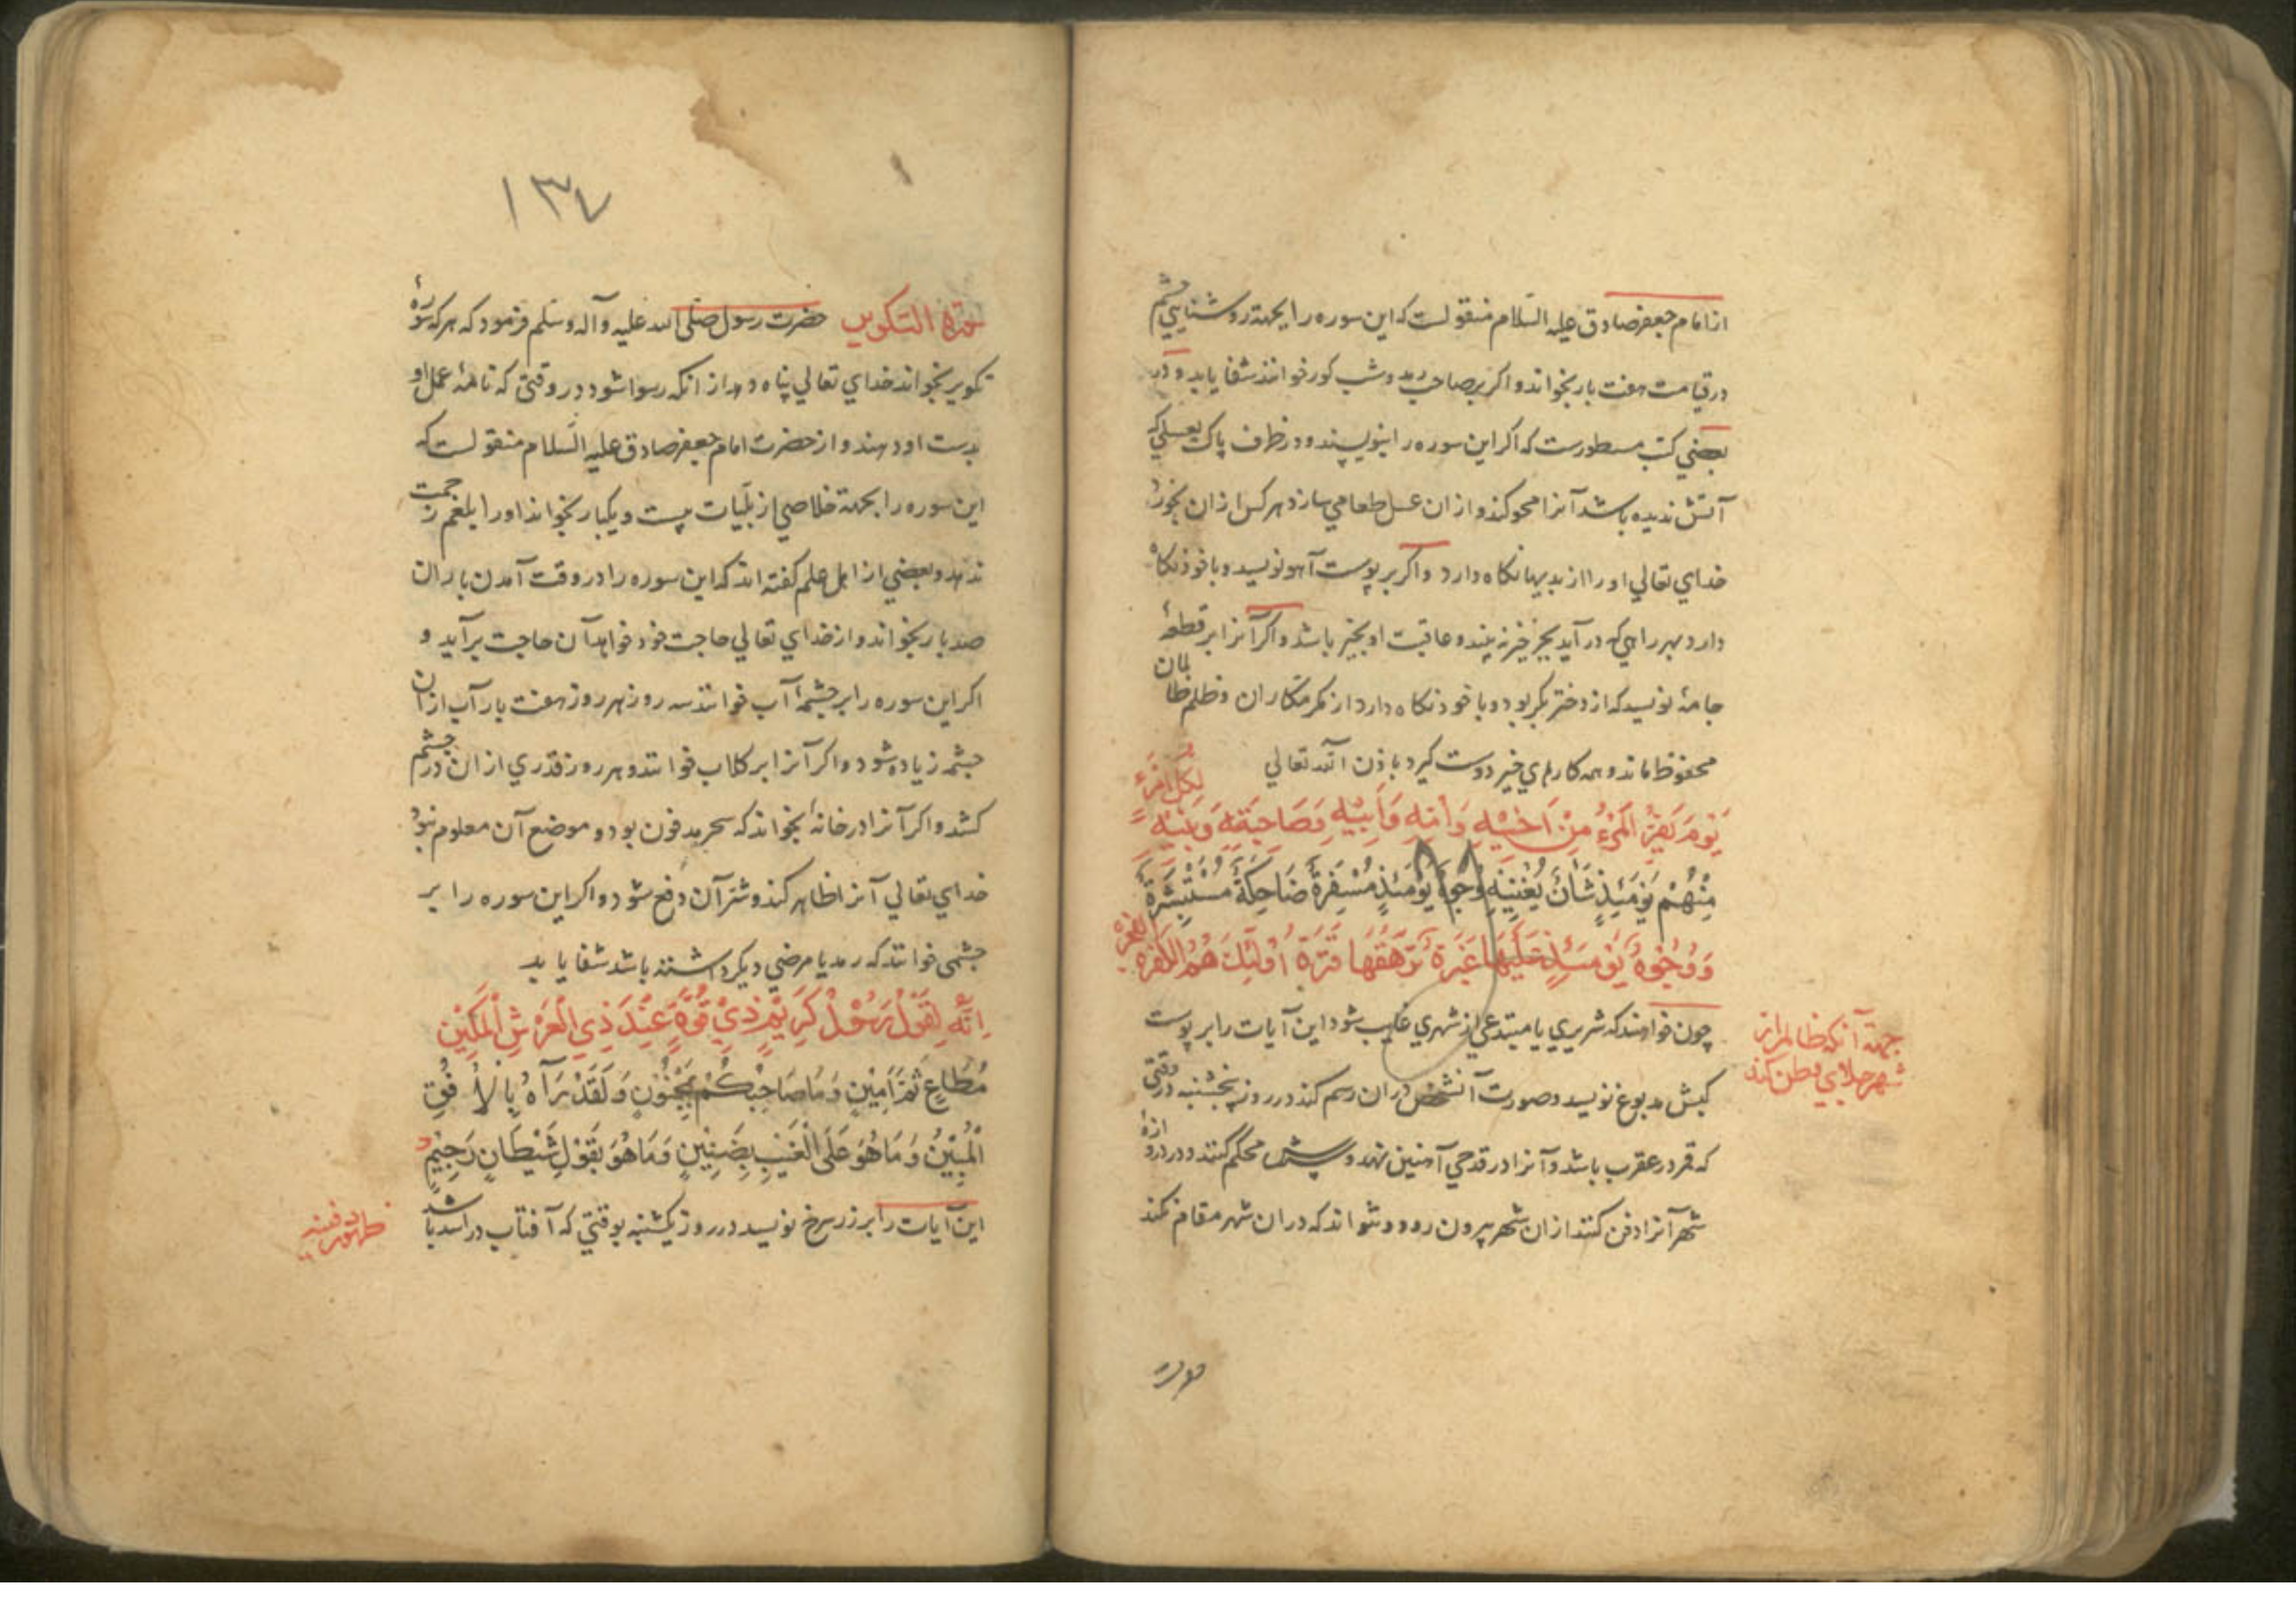 از امام جعفر صادق علیه السلام منقولست که این سوره را بجهة روشنایی چشم
در قیامت هفت بار بخواند و اکر بر صاحب رمد و شب کور خوانند شفا یابد و در
بعضی کتب مسطورست که اکر این سوره را بنویسند و در ظرف پاک بعسلی که
آتش ندیده باشد آنرا محو کند و از ان عسل طعامی سازد هر کس از ان بخورد
خدای تعالی او را از بدیها نکاه دارد و اکر بر پوست آهو نویسد و با خود نکاه
دارد بهر راهی که در آید بجز خیر نه بیند و عاقبت او بخیر باشد و اکر آنرا بر قطعهٔ
جامهٔ نویسد که از دختر بکر بود و با خود نکاه دارد از مکر مکاران و ظلم ظالمان
محفوظ ماند و همه کارهای خیر دوست کیرد باذن الله تعالی
یَوْمَ یَفِرُّ الْمَرْءُ مِنْ اَخیٖهِ وَاُمِّهِ وَاَبیٖهِ وَصَاحِبَتِهِ وَبَنیٖهِ لِکُلِّ امْرِئٍ
مِنْهُمْ یَوْمَئِذٍ شَأْنٌ یُغْنیٖهِ وُجُوهٌ یَوْمَئِذٍ مُسْفِرَةٌ ضَاحِکَةٌ مُسْتَبْشِرَةٌ
وَوُجُوهٌ یَوْمَئِذٍ عَلَیْهَا غَبَرَةٌ تَرْهَقُهَا قَتَرَةٌ اُولٰئِکَ هُمُ الْکَفَرَةُ الْفَجَرَةُ
چون خواهند که شریری یا مبتدعی از شهری غایب شود این آیات را بر پوست
کبش مدبوغ نویسد و صورت آنشخص در ان رسم کند در روز پنجشنبه در وقتی
که قمر در عقرب باشد و آنرا در قدحی آهنین نهد و سرش محکم کنند و در دروازهٔ
شهر آنرا دفن کنند از ان شهر بیرون رود و نتواند که در ان شهر مقام کند
جهة آنکه ظالم را از
شهر جلای وطن کند
سوره
١٣٧
سورة التکویر حضرت رسول صلی الله علیه وآله وسلم فرمود که هر که سورهٔ
تکویر بخواند خدای تعالی پناه دهد از انکه رسوا شود در وقتی که نامهٔ عمل او
بدست او دهند و از حضرت امام جعفر صادق علیه السلام منقولست که
این سوره را بجهة خلاصی از بلیات بیست و یکبار بخواند او را بلغم زحمت
ندهد و بعضی از اهل علم کفته اند که این سوره را در وقت آمدن باران
صد بار بخواند و از خدای تعالی حاجت خود خواهد آن حاجت بر آید و
اکر این سوره را بر چشمهٔ آب خوانند سه روز هر روز هفت بار آب از ان
چشمه زیاده شود و اکر آنرا بر کلاب خوانند و هر روز قدری از ان در چشم
کشد و اکر آنرا در خانهٔ بخواند که سحر مدفون بود و موضع آن معلوم نبود
خدای تعالی آنرا ظاهر کند و شر آن دفع شود و اکر این سوره را بر
چشمی خوانند که رمد یا مرضی دیکر داشته باشد شفا یابد
اِنَّهُ لَقَوْلُ رَسُولٍ کَرِیْمٍ ذِیْ قُوَّةٍ عِنْدَ ذِی الْعَرْشِ الْمَکِیْنِ
مُطَاعٍ ثَمَّ اَمِیْنٍ وَمَا صَاحِبُکُمْ بِمَجْنُوْنٍ وَلَقَدْ رَآهُ بِالْاُفُقِ
الْمُبِیْنِ وَمَا هُوَ عَلَی الْغَیْبِ بِضَنِیْنٍ وَمَا هُوَ بِقَوْلِ شَیْطَانٍ رَجِیْمٍ
این آیات را بر زر سرخ نویسد در روز یکشنبه بوقتی که آفتاب در اسد باشد